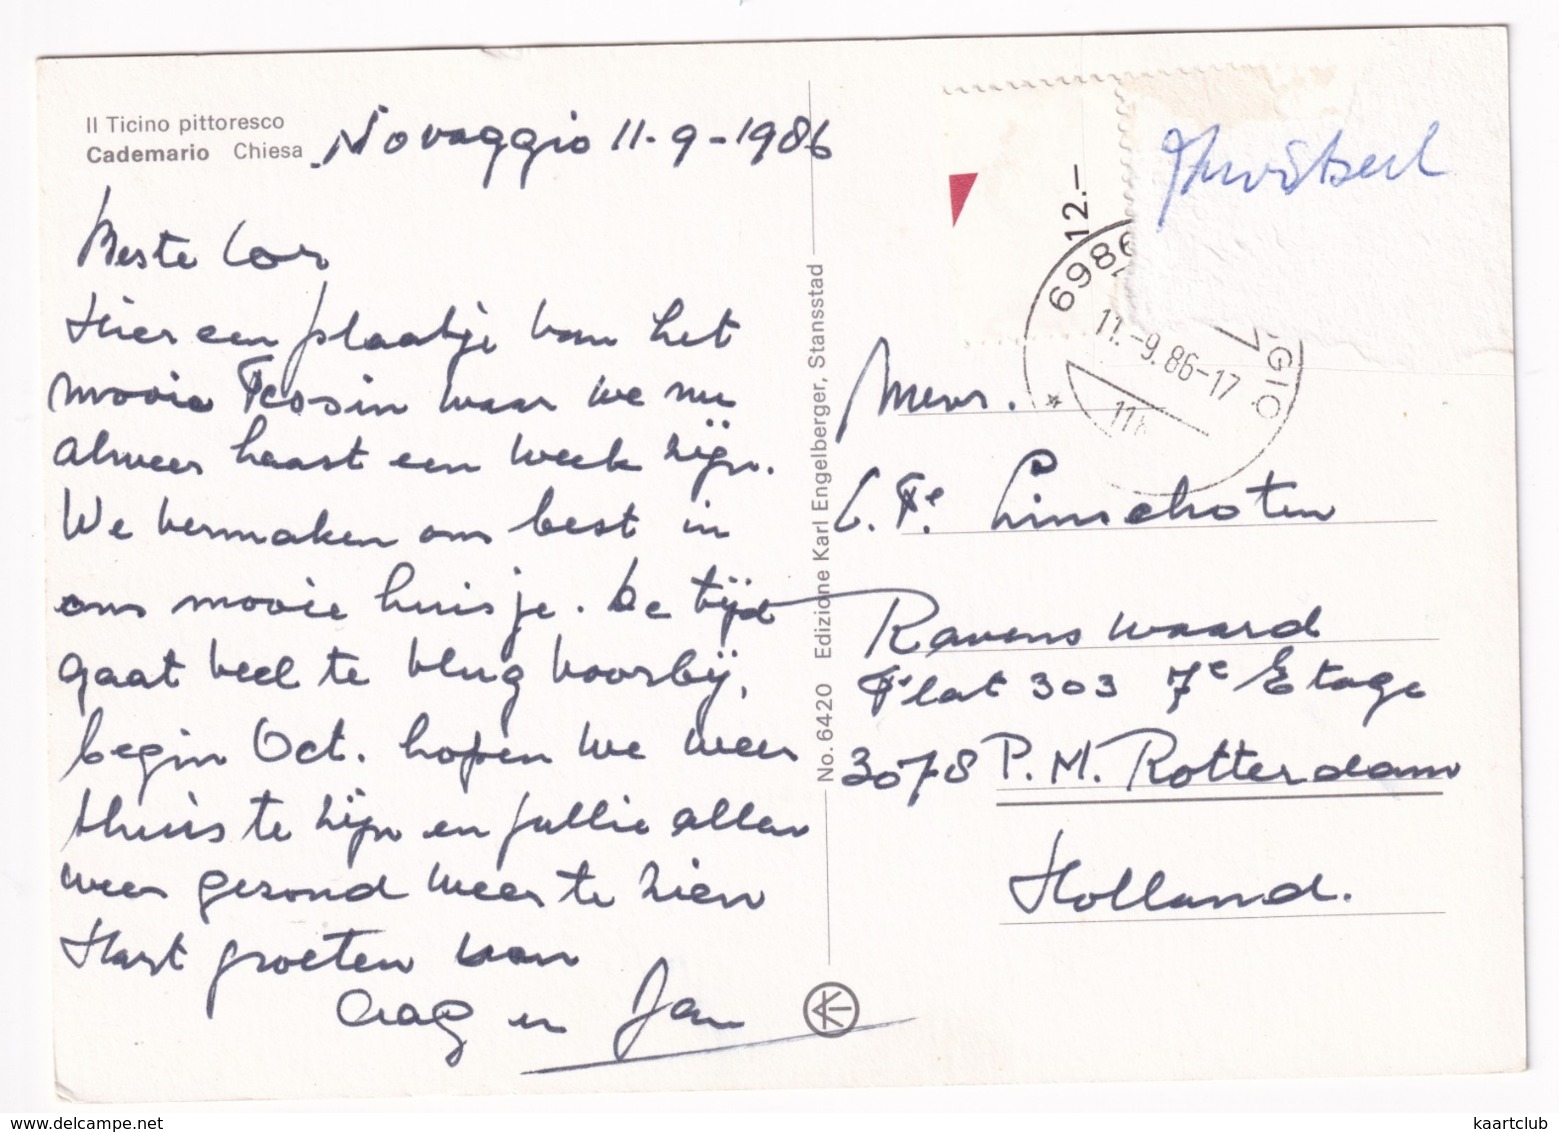 Il Ticino pittoresco
Cademario Chiesa
Novaggio 11-9-1986
Beste Cor
Hier een plaatje van het
mooie Tessin waar we nu
alweer haast een week zijn.
We vermaken ons best in
ons mooie huisje. De tijd
gaat veel te vlug voorbij,
begin Oct. hopen we weer
thuis te zijn en jullie allen
weer gezond weer te zien
Hart groeten van
en Jan
No. 6420 Edizione Karl Engelberger, Stansstad
12.–
6986
11.-9.86-17
GIO
Mevr.
C. Fe. Linschoten
Ravenswaard
Flat 303 7e Etage
3078 P.M. Rotterdam
Holland.
delcampe.net
kaartclub